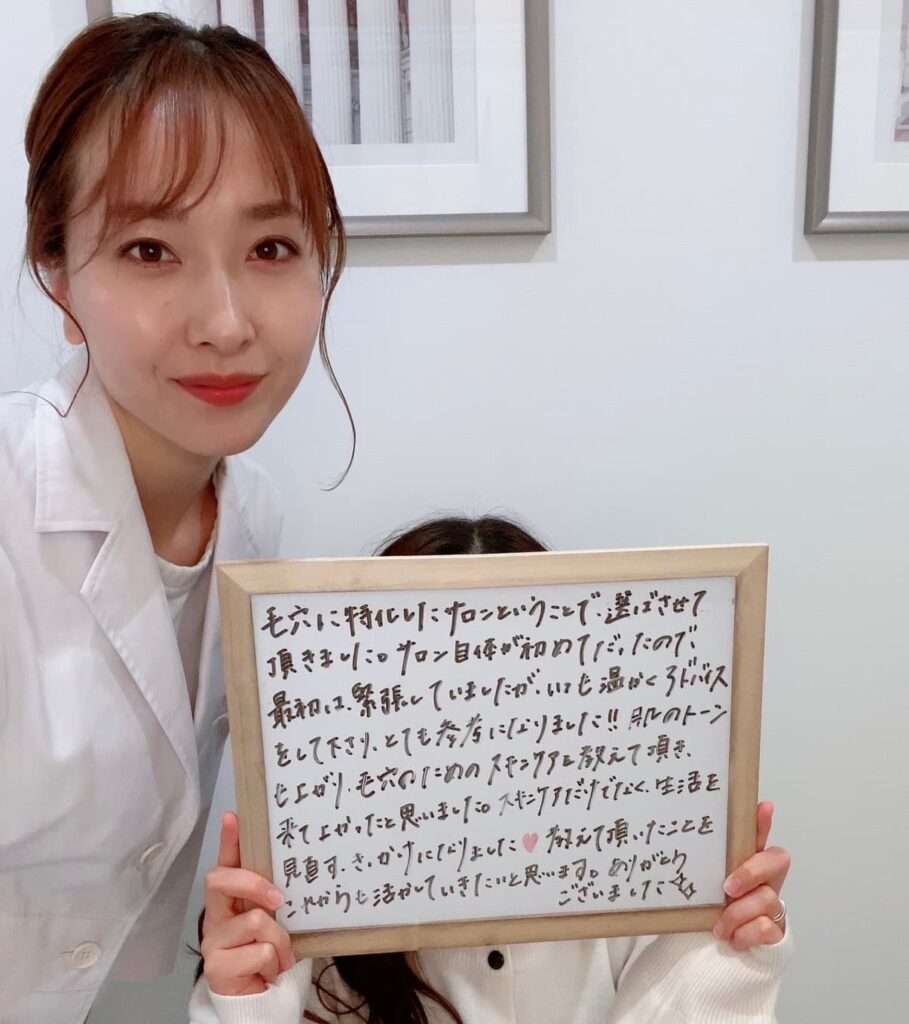 毛穴に特化したサロンということで、選ばせて
頂きました。サロン自体が初めてだったので、
最初は、緊張していましたが、いつも温かくアドバイス
をして下さり、とても参考になりました!! 肌のトーン
も上がり、毛穴のためのスキンケアを教えて頂き、
来て よかったと思いました。スキンケアだけでなく、生活を
見直す、きっかけになりました♥ 教えて頂いたことを
これからも活かしていきたいと思います。ありがとう
ございました☆☆